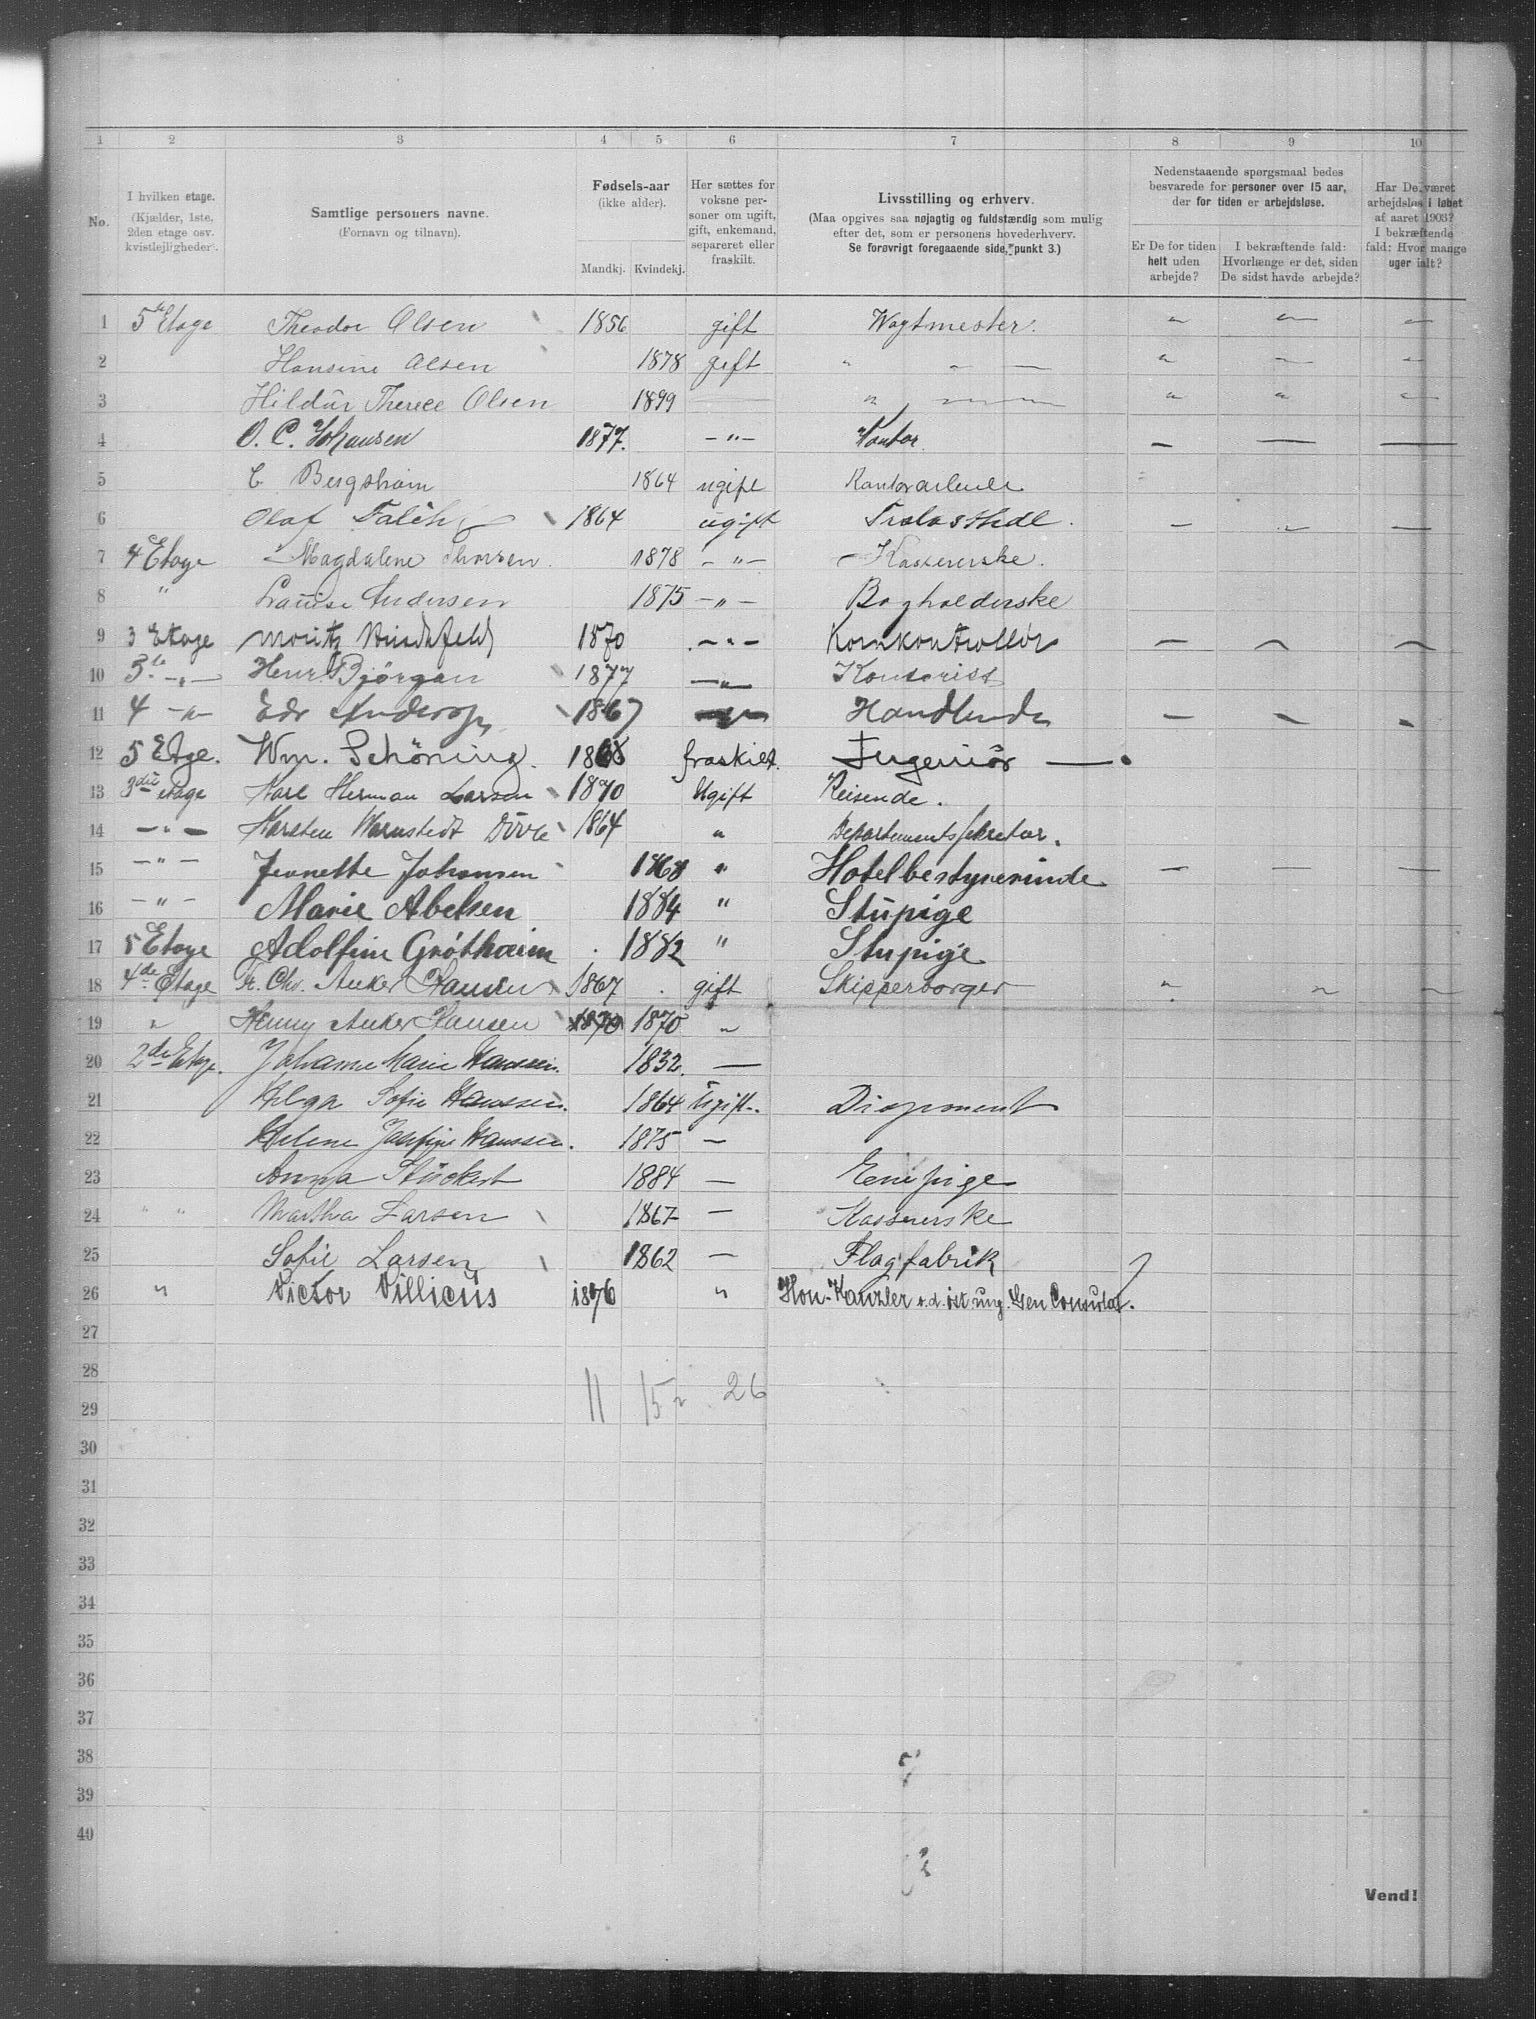 1 2 3 4 5 6 7 8 9 10
No.
I hvilken etage.
(Kjælder, 1ste,
2den etage osv.
kvistlejligheder).
Samtlige personers navne.
(Fornavn og tilnavn).
Fødsels-aar
(ikke alder).
Mandkj. Kvindekj.
Her sættes for
voksne per-
soner om ugift,
gift, enkemand,
separeret eller
fraskilt.
Livsstilling og erhverv.
(Maa opgives saa nøjagtig og fuldstændig som mulig
efter det, som er personens hovederhverv.
Se forøvrigt foregaaende side, punkt 3.)
Nedenstaaende spørgsmaal bedes
besvarede for personer over 15 aar,
der for tiden er arbejdsløse.
Er De for tiden
helt uden
arbejde?
I bekræftende fald:
Hvorlænge er det, siden
De sidst havde arbejde?
Har De været
arbejdsløs i løbet
af aaret 1903?
I bekræftende
fald: Hvor mange
uger ialt?
1 5te Etage Theodor Olsen 1856 gift Vagtmester. " " "
2 Hansine Olsen 1878 gift " " — " " "
3 Hildur Therese Olsen 1899 — " " " "
4 O. C. Johansen 1877. — " — Kontor. — — —
5 C Bergsholm 1864 ugift
6 Olaf Falch 1864 ugift Trælasthdl. — " —
7 4 Etage Magdalene Thorsen. 1878 — " — Kassererske.
8 " Louise Andersen 1875 — " — Bogholderske
9 3 Etage Moritz 1870 — " — Kornkontrollør — — —
10 3. — " — Henr. Bjørgan 1877 — " — Kontorist
11 4 — " Edv Anderson 1867 — " — Handlende — — —
12 5 Etge. Wm. Schöning. 1868 fraskilt. Ingeniör —
13 3die etage Karl Herman Larsen 1870 Ugift Reisende.
14 — " — Karsten Warnstedt 1864 " Departementssekretær.
15 — " — Jeanette Johansen 1868 " Hotelbestyrerinde — — —
16 — " — Marie Abelsen 1884 " Stupige
17 5 Etage Adolfine Grøthaim 1882 " Stupige
18 4de Etage Fr. Chr. Anker Hansen 1867 gift Skipperborger " " "
19 " Henny Anker Hansen 1870 1870 "
20 2de Etage. Johanne Marie Hanssen. 1832. —
21 Helga Sofie Hanssen. 1864 Ugift. Disponent
22 Helene Josefine Hanssen. 1875 —
23 Anna 1884 — Enepige
24 " " Martha Larsen 1867 — Kassererske
25 Sofie Larsen 1862 — Flagfabrik
26 " Victor Villicus 1876 " Hon. Kanzler v. d. öst ung. Gen Consulat.
27
28
11 15 26
29
30
31
32
33
34
35
36
37
38
39
40
Vend!